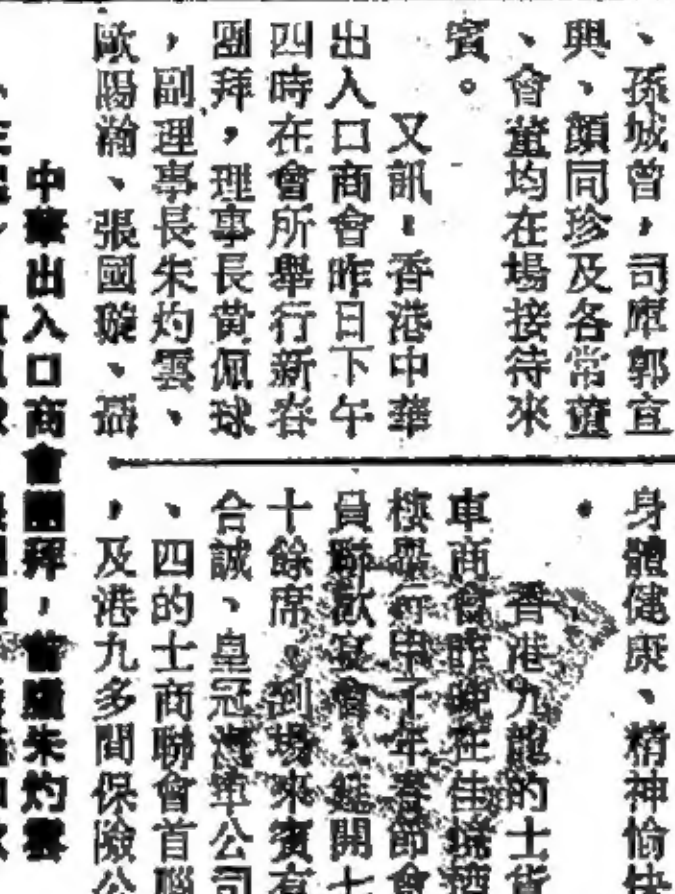 、孫城曾，司庫郭宜
興、顏同珍及各常董
、會董均在場接待來
賓。
又訊，香港中華
出入口商會昨日下午
四時在會所舉行新春
團拜，理事長黃佩球
，副理事長朱灼雲、
歐陽瀚、張國璇、
身體健康、精神愉快
。
香港九龍的士貨
車商會昨晚在佳
樓舉行甲子年春節會
員聯歡宴會，筵開七
十餘席。到場來賓有
合誠、皇冠汽車公司
、四的士商聯會首腦
，及港九多間保險公
中華出入口商會團拜，前朱灼雲